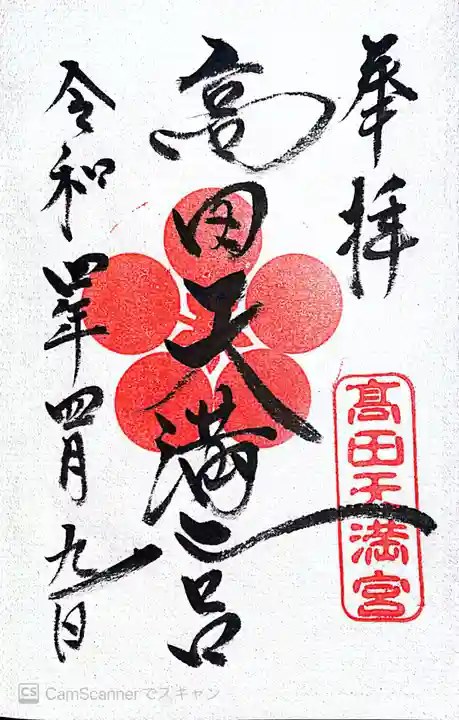 奉拝
髙田天満宮
高田天満宮
令和四年四月九日
CS CamScannerでスキャン